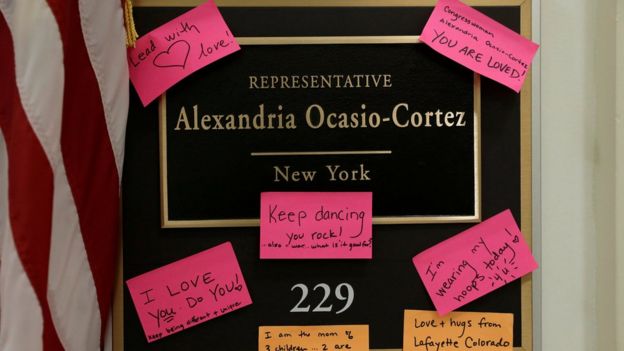 Lead with
love!
Congresswoman
Alexandria Ocasio-Cortez
YOU ARE LOVED!
REPRESENTATIVE
Alexandria Ocasio-Cortez
New York
Keep dancing
you rock!
...also war...what is it good for?
I LOVE
You. Do You!
Keep being different +
I'm
wearing my
hoops today!
4 U
229
I am the mom of
3 children ... 2 are
Love + hugs from
Lafayette Colorado